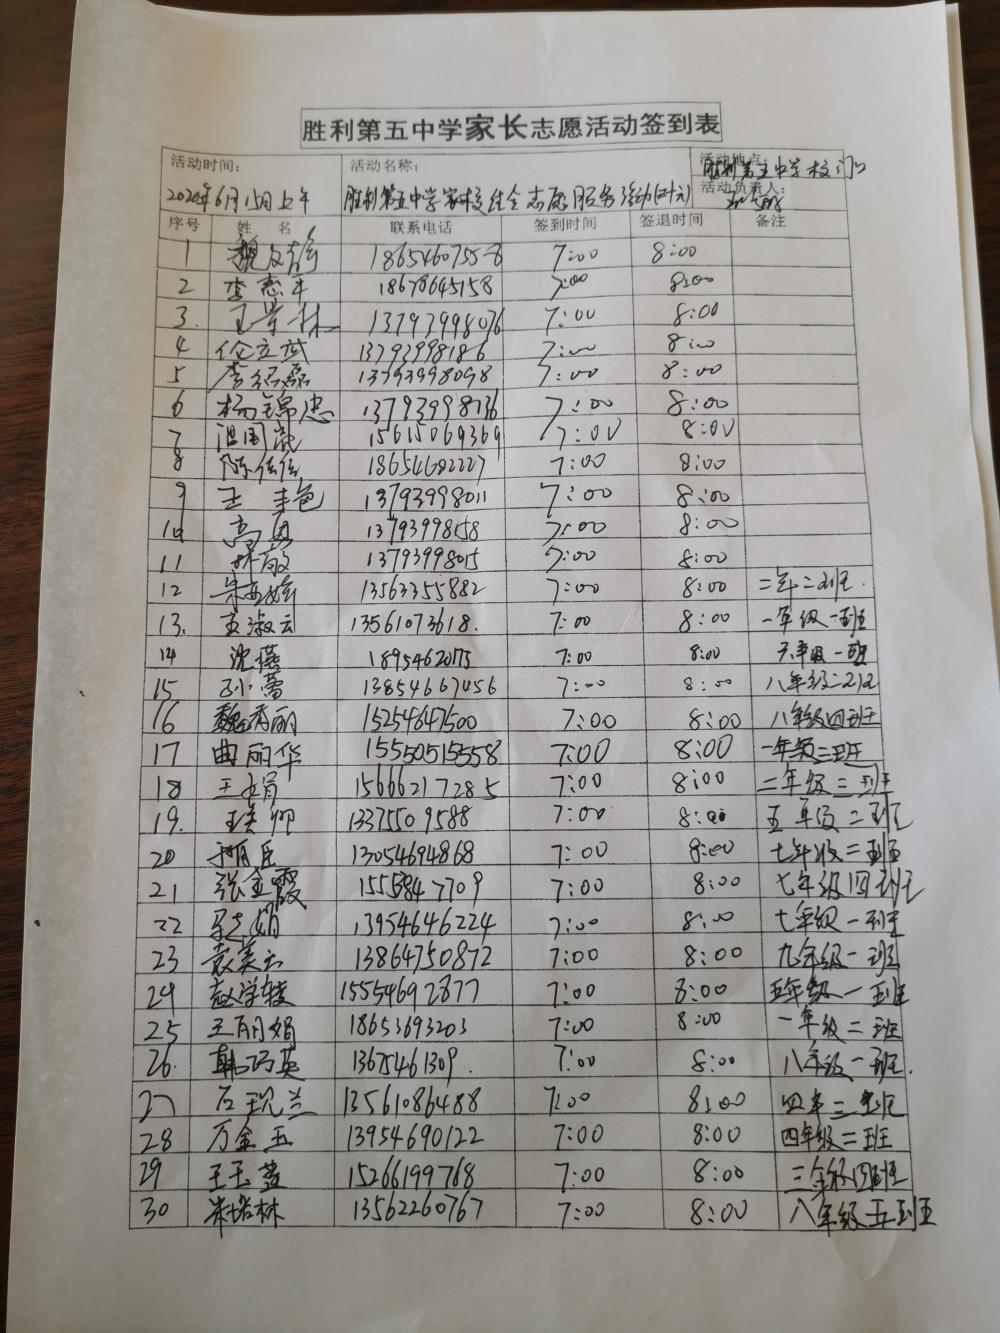 胜利第五中学家长志愿活动签到表
活动时间： 活动名称： 活动地点： 胜利第五中学校门口
2020年6月15日上午 胜利第五中学家校 志愿服务活动(二十六) 活动负责人：
序号 姓 名 联系电话 签到时间 签退时间 备注
1 魏文 18654607558 7:00 8:00
2 李志军 18678645158 7:00 8:00
3. 王学林 13793998076 7:00 8:00
4 伦立武 13793998186 7:00 8:00
5 李绍磊 13793998098 7:00 8:00
6 杨锦忠 13793998136 7:00 8:00
7 国 15615069369 7:00 8:00
8 陈佳佳 18654682227 7:00 8:00
9 王 13793998011 7:00 8:00
10 高 13793998158 7:00 8:00
11 林敏 13793998015 7:00 8:00
12 13563355882 7:00 8:00 二年二班.
13. 王淑云 13561073618. 7:00 8:00 一年级一班
14 沈蓓 1895462075 7:00 8:00 六年级一班
15 孙蕾 13854667456 7:00 8:00 八年级二班
16 魏秀丽 15254847500 7:00 8:00 八年级四班
17 曲丽华 15550515558 7:00 8:00 一年级三班
18 王娟 15666217285 7:00 8:00 二年级三班
19. 13375509588 7:00 8:00 五年级二班
20 13054694868 7:00 8:00 七年级二班
21 张金霞 7:00 8:00 七年级四班
22 娟 13954646224 7:00 8:00 七年级一班
23 袁美云 13864750872 7:00 8:00 九年级一班
24 赵学 15554692877 7:00 8:00 五年级一班
25 王丽娟 18653693203 7:00 8:00 一年级二班
26. 韩巧英 13675461309. 7:00 8:00 八年级一班.
27 石现兰 13561086488 7:00 8:00 四年三班
28 万金玉 13954690122 7:00 8:00 四年级二班
29 王玉萱 15266199768 7:00 8:00 三年级四班
30 林 13562260767 7:00 8:00 八年级五班